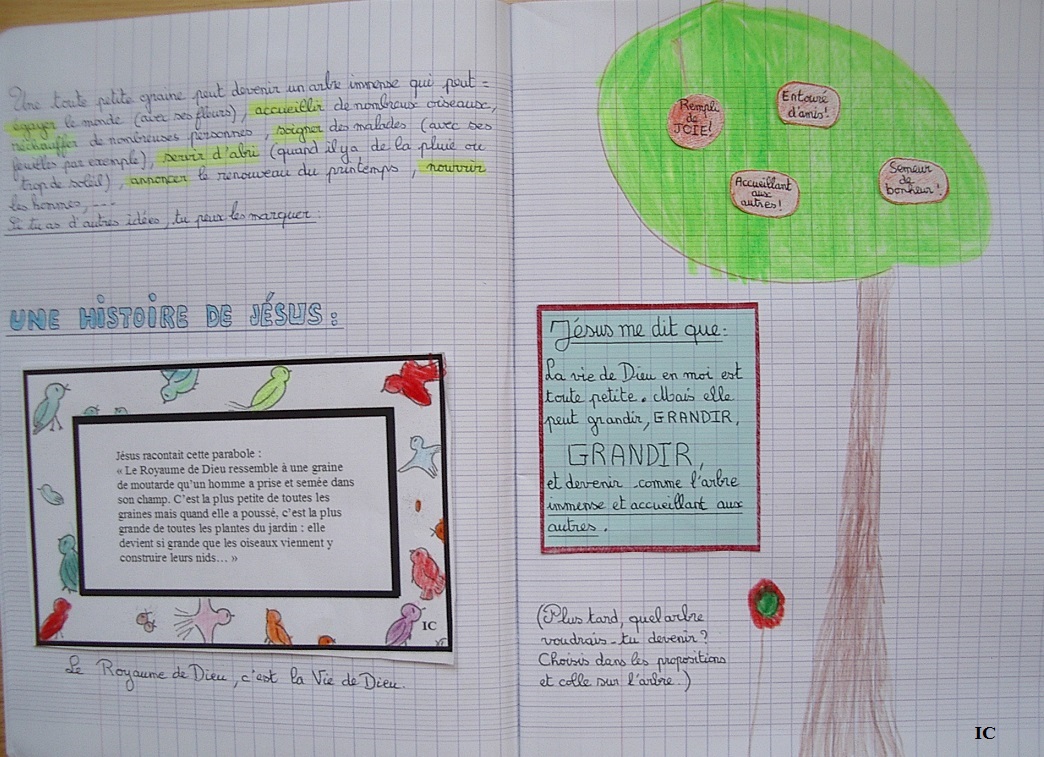 Une toute petite graine peut devenir un arbre immense qui peut =
égayer le monde (avec ses fleurs), accueillir de nombreux oiseaux,
réchauffer de nombreuses personnes, soigner des malades (avec ses
feuilles par exemple), servir d'abri (quand il y a de la pluie ou
trop de soleil), annoncer le renouveau du printemps, nourrir
les hommes, ...
Si tu as d'autres idées, tu peux les marquer:
UNE HISTOIRE DE JÉSUS:
Jésus racontait cette parabole :
« Le Royaume de Dieu ressemble à une graine
de moutarde qu'un homme a prise et semée dans
son champ. C'est la plus petite de toutes les
graines mais quand elle a poussé, c'est la plus
grande de toutes les plantes du jardin : elle
devient si grande que les oiseaux viennent y
construire leurs nids… »
IC
Le Royaume de Dieu, c'est la Vie de Dieu.
Rempli
de
JOIE!
Entouré
d'amis!
Accueillant
aux
autres!
Semeur
de
bonheur!
Jésus me dit que:
La vie de Dieu en moi est
toute petite. Mais elle
peut grandir, GRANDIR,
GRANDIR,
et devenir comme l'arbre
immense et accueillant aux
autres.
(Plus tard, quel arbre
voudrais-tu devenir?
Choisis dans les propositions
et colle sur l'arbre.)
IC